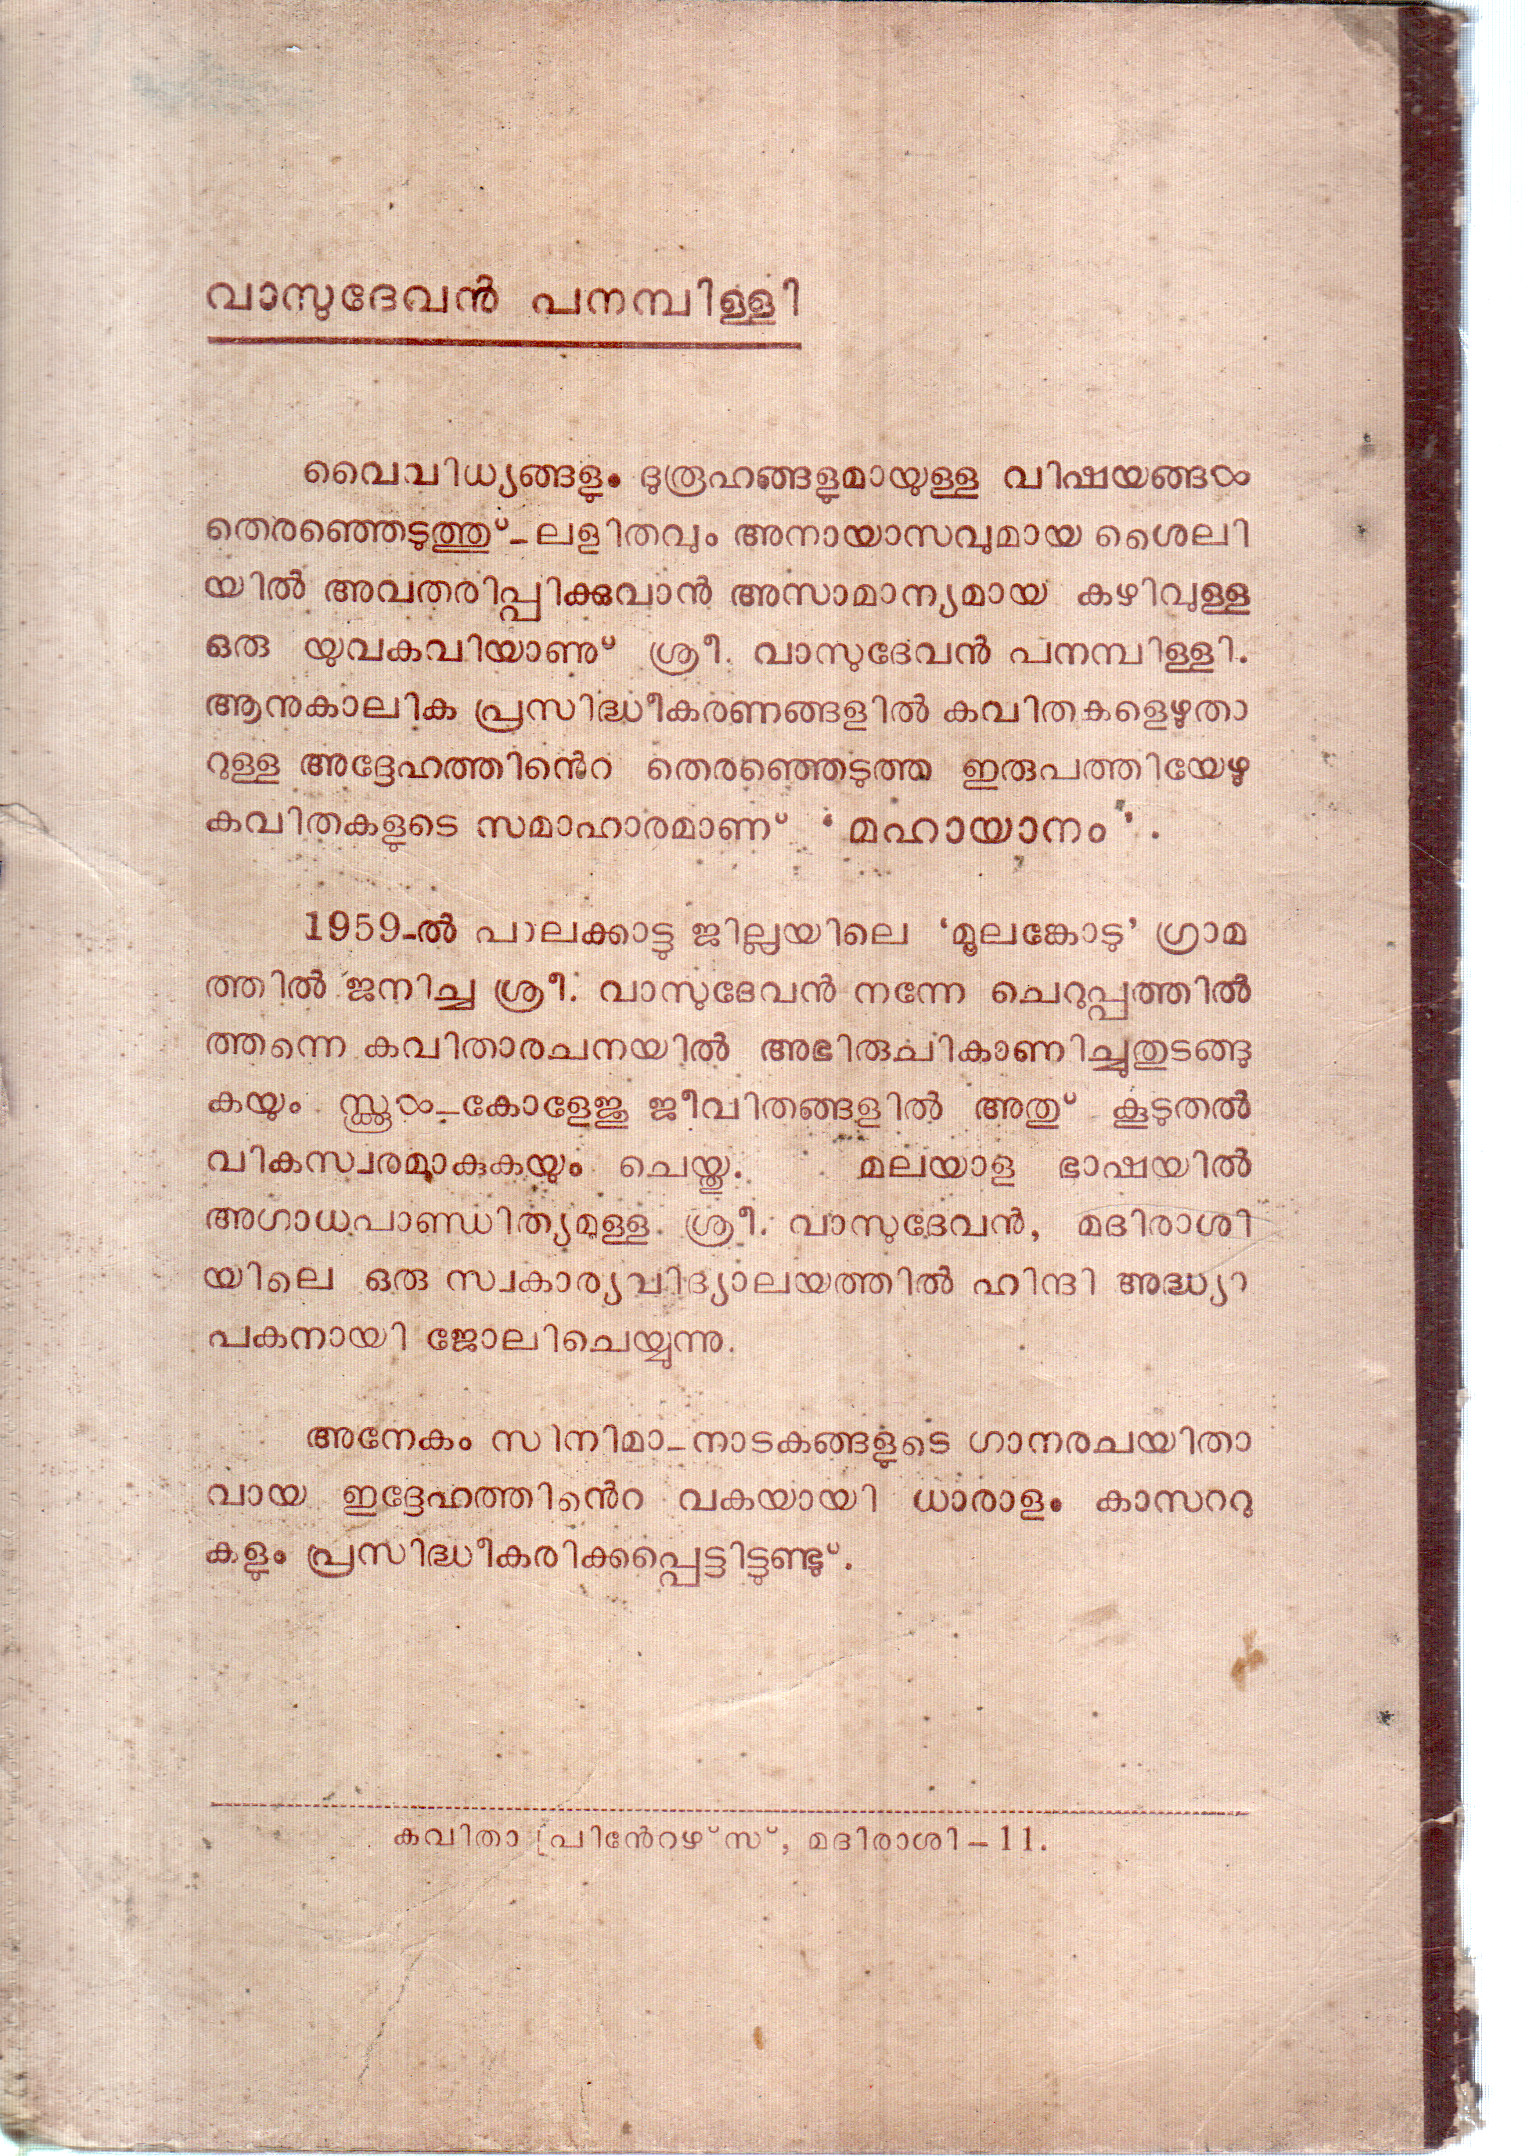 വാസുദേവൻ പനമ്പിള്ളി
വൈവിധ്യങ്ങളും ദുരൂഹങ്ങളുമായുള്ള വിഷയങ്ങൾ
തെരഞ്ഞെടുത്തു്-ലളിതവും അനായാസവുമായ ശൈലി
യിൽ അവതരിപ്പിക്കുവാൻ അസാമാന്യമായ കഴിവുള്ള
ഒരു യുവകവിയാണു് ശ്രീ. വാസുദേവൻ പനമ്പിള്ളി.
ആനുകാലിക പ്രസിദ്ധീകരണങ്ങളിൽ കവിതകളെഴുതാ
റുള്ള അദ്ദേഹത്തിൻെറ തെരഞ്ഞെടുത്ത ഇരുപത്തിയേഴു
കവിതകളുടെ സമാഹാരമാണ് ‘മഹായാനം’.
1959-ൽ പാലക്കാട്ടു ജില്ലയിലെ ‘മൂലങ്കോടു’ ഗ്രാമ
ത്തിൽ ജനിച്ച ശ്രീ. വാസുദേവൻ നന്നേ ചെറുപ്പത്തിൽ
ത്തന്നെ കവിതാരചനയിൽ അഭിരുചികാണിച്ചുതുടങ്ങു
കയും സ്ക്കൂൾ-കോളേജു ജീവിതങ്ങളിൽ അതു് കൂടുതൽ
വികസ്വരമാകുകയും ചെയ്തു. മലയാള ഭാഷയിൽ
അഗാധപാണ്ഡിത്യമുള്ള ശ്രീ. വാസുദേവൻ, മദിരാശി
യിലെ ഒരു സ്വകാര്യവിദ്യാലയത്തിൽ ഹിന്ദി അദ്ധ്യാ
പകനായി ജോലിചെയ്യുന്നു.
അനേകം സിനിമാ-നാടകങ്ങളുടെ ഗാനരചയിതാ
വായ ഇദ്ദേഹത്തിൻെറ വകയായി ധാരാളം കാസററു
കളും പ്രസിദ്ധീകരിക്കപ്പെട്ടിട്ടുണ്ടു്.
കവിതാ പ്രിൻേറഴ്സ്, മദിരാശി-11.